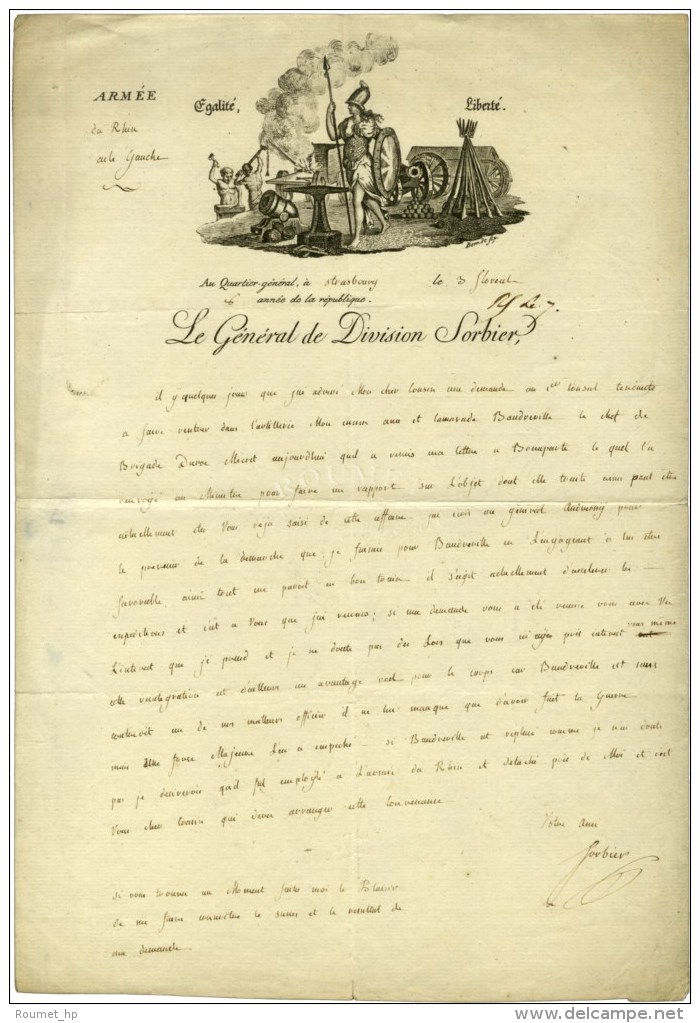 ARMÉE
du Rhin
aile Gauche
Egalité,
Liberté.
Au Quartier-général, à Strasbourg le 3 floreal
année de la république.
Le Général de Division Sorbier,
il y quelques jours que j'ai adressé Mon cher Cousin ma demande au 1er Consul tendante
a faire rentrer dans l'artillerie Mon ancien ami et Camarade Baudreville le chef de
Brigade M'ecrit aujourdhui qu'il a remis ma lettre a Bonaparte le quel l'a
envoyé au Ministre pour faire un rapport sur l'objet dont elle traite
actuellement Vous deja saisi de cette affaire j'ai ecris au général pour
le prevenir de la demarche que je faisais pour Baudreville en L'engageant a lui être
favorable, ainsi tout me parait en bon train il s'agit actuellement d'accelerer les
expeditions et c'est a Vous que j'ai recours; si ma demande vous a été remise vous avez Vu
L'interest que j'y prend et je ne doute pas des Lors que vous n'ayez pris interest vous meme
cette reintegration est d'ailleurs un avantage reel pour le corps car Baudreville est sans
contredit un de nos meilleurs officiers il ne lui manque que d'avoir fait la Guerre
mais une force Majeure L'en a empeché - si Baudreville est replacé comme je n'en doute
pas je desirerois qu'il fut employé a L'armée du Rhin et detaché près de Moi et c'est
Vous cher Cousin qui devez arranger cette convenance
Votre ami
Sorbier
si vous trouvez un Moment faites moi le Plaisir
de me faire connaitre le succes et le resultat de
ma demande
Roumet_hp
delcampe.net